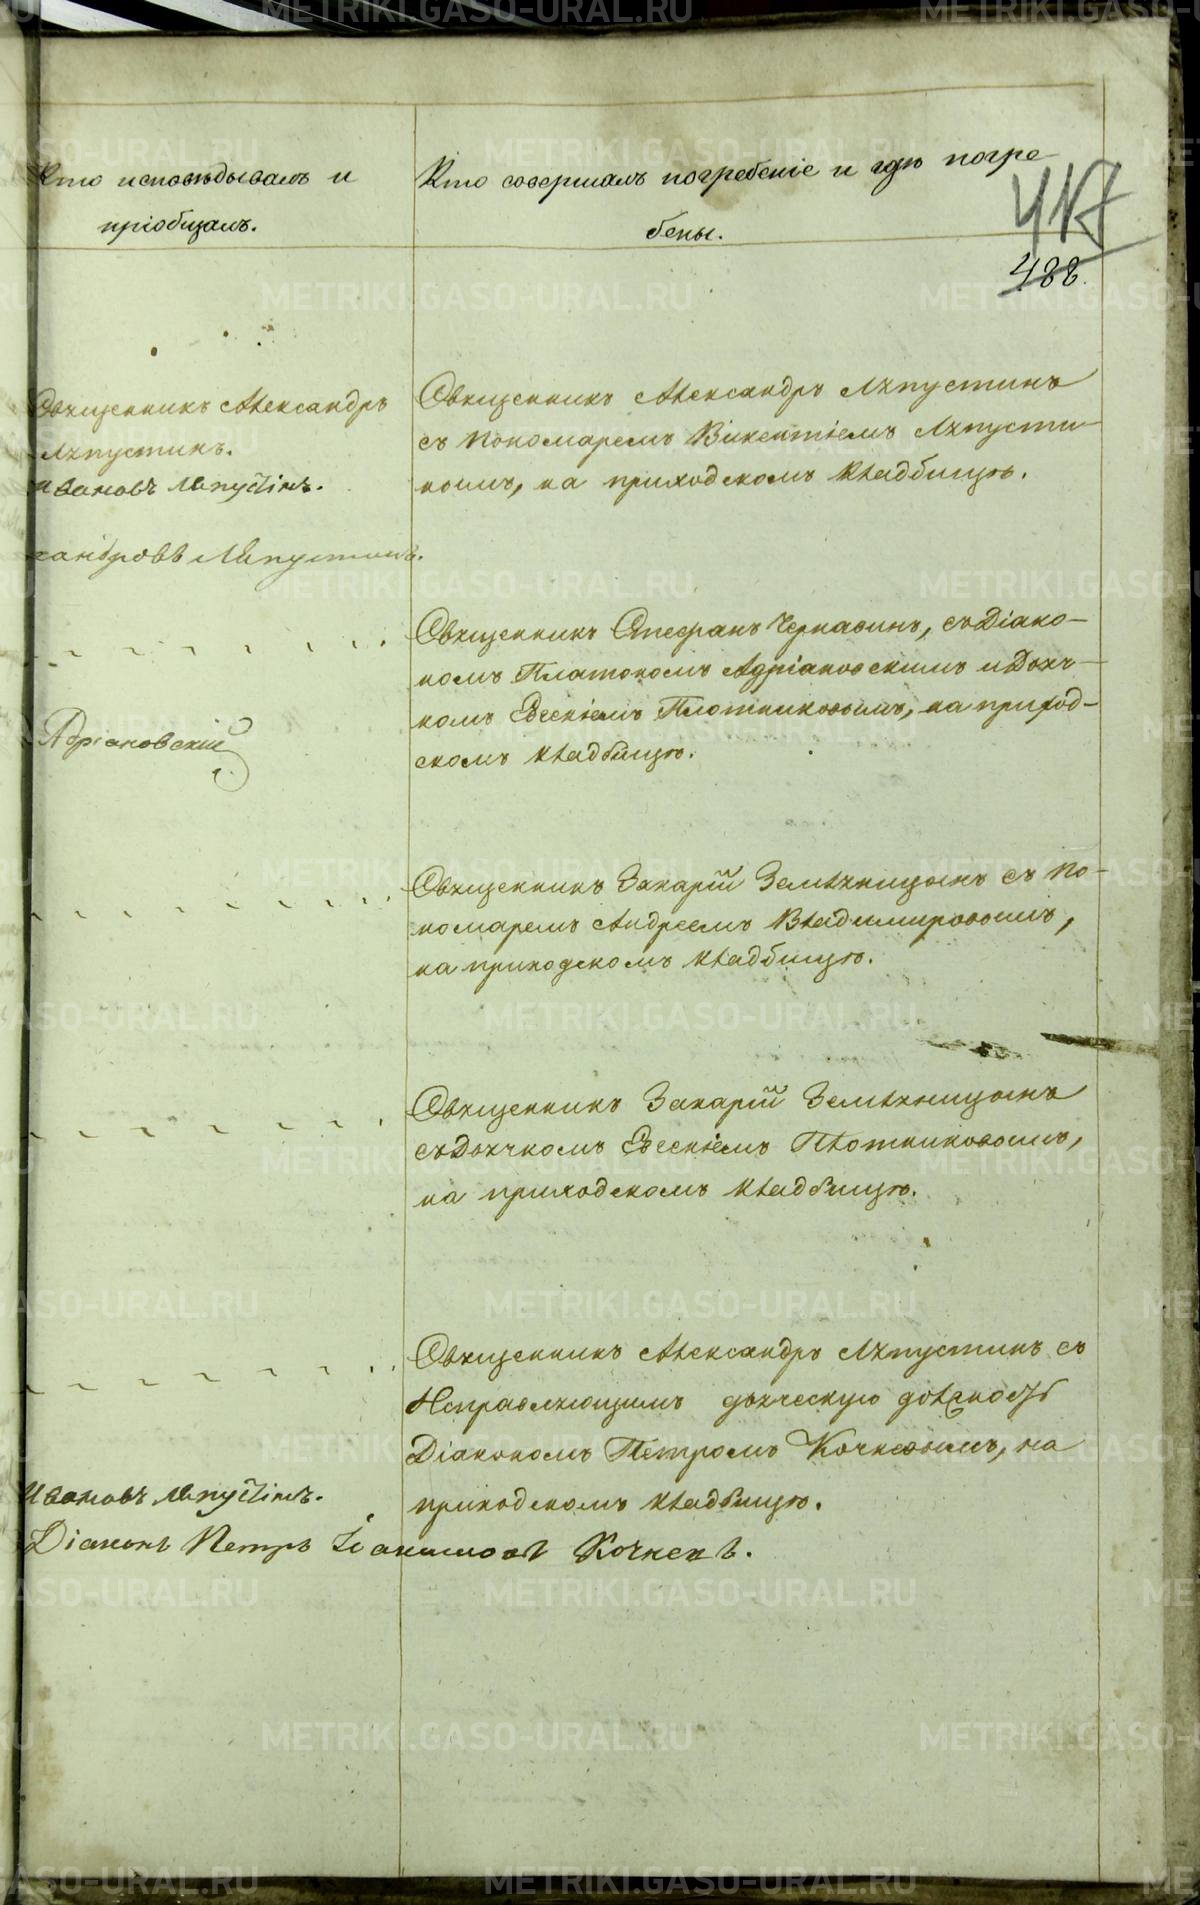 Кто исповѣдывалъ и
пріобщалъ.
Кто совершалъ погребеніе и гдѣ погре-
бены.
417
488.
Священникъ Александръ
Ляпустинъ.
Ивановъ Ляпустинъ.
сандровъ Ляпустинъ.
Священникъ Александръ Ляпустинъ
съ Пономаремъ Викентіемъ Ляпусти-
нымъ, на приходскомъ кладбищѣ.
Священникъ Стефанъ Чернавинъ, съ Діако-
номъ Платономъ Адріановскимъ и Дьяч-
комъ Евсевіемъ Плотниковымъ, на приход-
скомъ кладбищѣ.
Адріановскій
Священникъ Захарій Земляницынъ съ По-
номаремъ Андреемъ Владимировымъ,
на приходскомъ кладбищѣ.
Священникъ Захарій Земляницынъ
съ Дьячкомъ Евсевіемъ Плотниковымъ,
на приходскомъ кладбищѣ.
Священникъ Александръ Ляпустинъ съ
Исправляющимъ дьяческую должность
Діакономъ Петромъ Кочневымъ, на
приходскомъ кладбищѣ.
Ивановъ Ляпустинъ.
Діаконъ Петръ Кочневъ.
METRIKI.GASO-URAL.RU